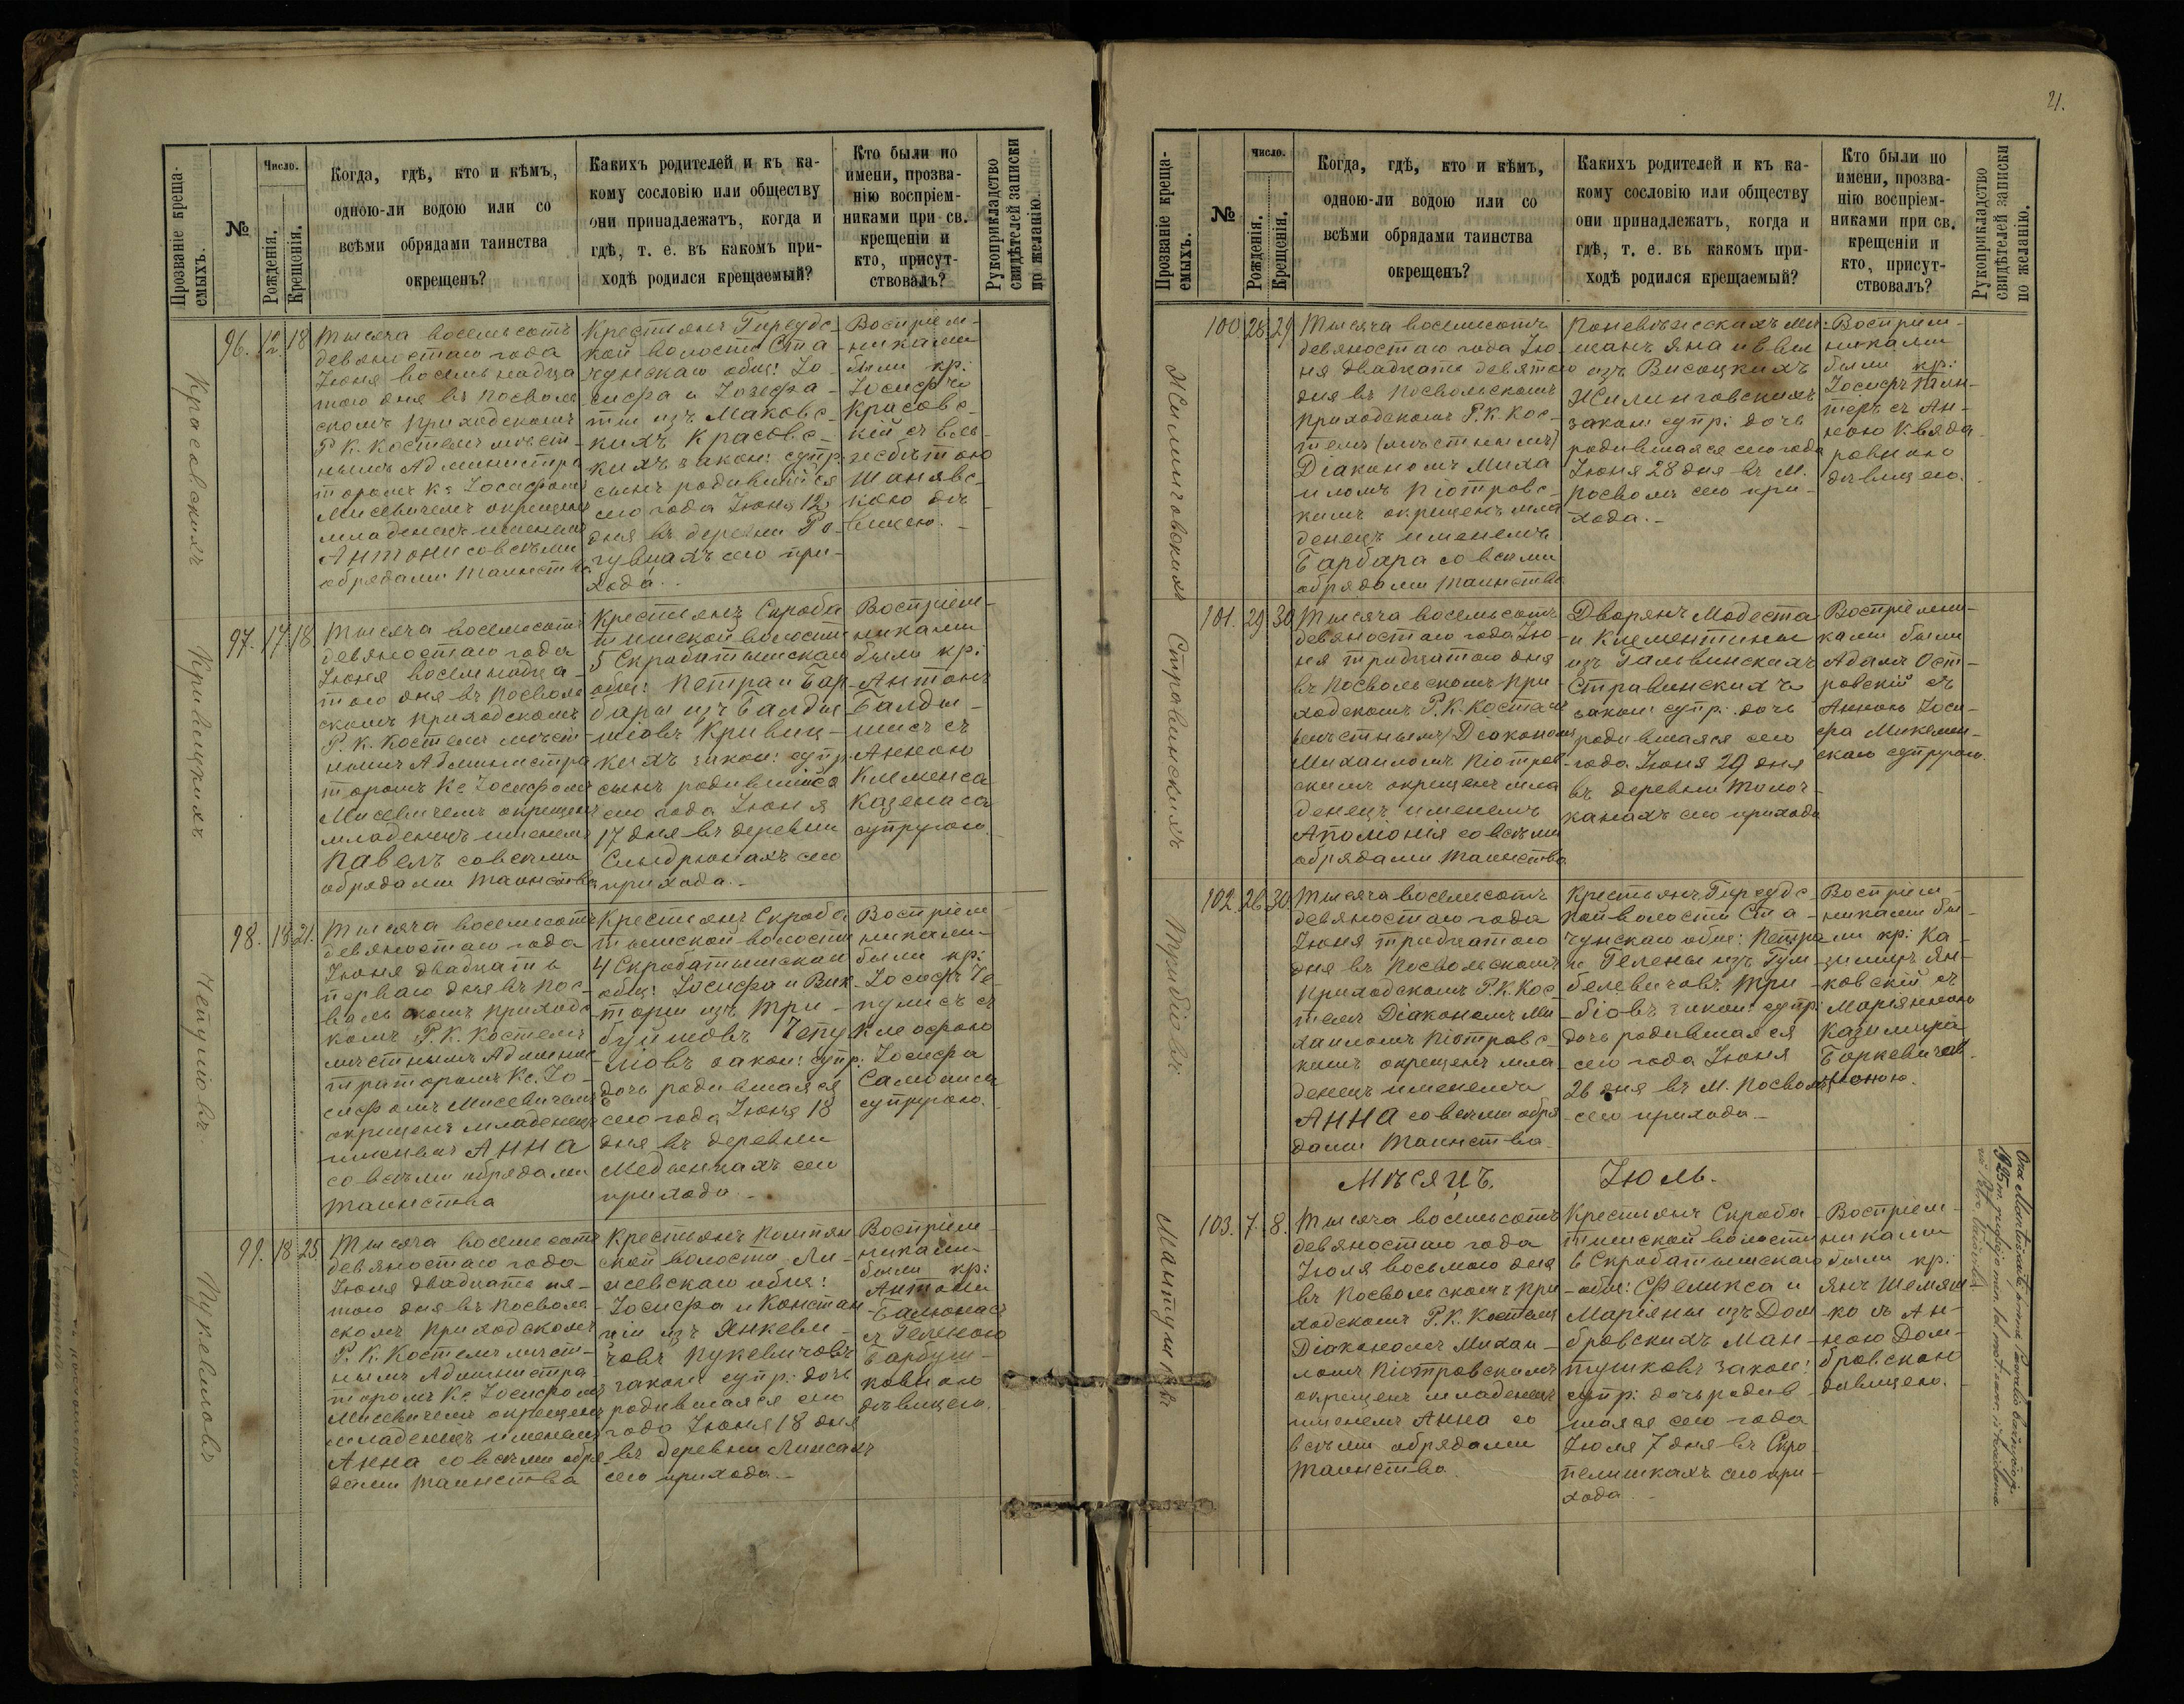 21.
Прозваніе креща-
емыхъ.
№
Число.
Рожденія.
Крещенія.
Когда, гдѣ, кто и кѣмъ,
одною-ли водою или со
всѣми обрядами таинства
окрещенъ?
Какихъ родителей и къ ка-
кому сословію или обществу
они принадлежатъ, когда и
гдѣ, т. е. въ какомъ при-
ходѣ родился крещаемый?
Кто были по
имени, прозва-
нію воспріем-
никами при св.
крещеніи и
кто, присут-
ствовалъ?
Рукоприкладство
свидѣтелей записки
по желанію.
Красовскихъ
96. 12. 18
Тысяча восемьсотъ
девяностаго года
Іюня восемьнадца
таго дня въ Посволь
скомъ приходскомъ
Р. К. Костелѣ мѣст-
нымъ Администра
торомъ Кс. Іосифомъ
Мисевичемъ окрещенъ
младенецъ именемъ
Антони со всѣми
обрядами таинства
Крестьянъ Гиредс-
кой волости Ста-
чунскаго общ: Іо-
сифа и Іозефа-
ты изъ Маковс-
кихъ Красовс-
кихъ закон: супр:
сынъ родившійся
сего года Іюня 12
дня въ деревни
сего при-
хода.
Воспріем-
никами
были кр:
Іосифъ
Красовс-
кій съ Ель-
жбѣтою
Шанявс-
кою дѣ-
вицею.
Кривицкихъ
97. 17. 18.
Тысяча восемьсотъ
девяностаго года
Іюня восемнадца-
таго дня въ Посволь
скомъ приходскомъ
Р. К. Костелѣ мѣст-
нымъ Администра
торомъ Кс Іосифомъ
Мисевичемъ окрещенъ
младенецъ именемъ
Павелъ со всѣми
обрядами таинства
Крестьянъ Скроба
тишской волости
5 Скробатышскаго
общ: Петра и Бар-
бары изъ Балды-
шовъ Кривиц-
кихъ закон: супр:
сынъ родившійся
сего года Іюня
17 дня въ деревни
Смыдрюнахъ сего
прихода.-
Воспріем-
никами
были кр:
Антонъ
Балды-
шисъ съ
Анною
Клеменса
Казенаса
супругою.
Чепуліовъ
98. 18. 21.
Тысяча восемьсотъ
девяностаго года
Іюня двадцать
перваго дня въ Пос-
вольскомъ приходс
комъ Р. К. Костелѣ
мѣстнымъ Админис
траторомъ Кс. Іо-
сифомъ Мисевичемъ
окрещенъ младенецъ
именемъ Анна
со всѣми обрядами
таинства
Крестьянъ Скроба
тышской волости
4 Скробатышскаго
общ: Іосифа и Вик-
торіи изъ Три-
буйшовъ Чепу-
ліовъ закон: супр:
дочь родившаяся
сего года Іюня 18
дня въ деревни
Медынкахъ сего
прихода.-
Воспріем
никами
были кр:
Іосифъ Че-
пулисъ съ
Клеофою
Іосифа
супругою.
Пукевичовъ
99. 18 25
Тысяча восемьсотъ
девяностаго года
Іюня двадцать пя-
таго дня въ Посволь
скомъ приходскомъ
Р. К. Костелѣ мѣст-
нымъ Администра
торомъ Кс. Іосифомъ
Мисевичемъ окрещенъ
младенецъ именемъ
Анна со всѣми обря-
дами таинства
Крестьянъ Компян
ской волости
общ:
Іосифа и Констан-
ціи изъ Янкеви-
човъ Пукевичовъ
закон: супр: дочь
родившаяся сего
года Іюня 18 дня
въ деревни
сего прихода.-
Воспріем-
никами
были кр:
Антони
съ Геленою
дѣвицею.
Жилинговскихъ
100. 28. 29
Тысяча восемьсотъ
девяностаго года Ію-
ня двадцать девятаго
дня въ Посвольскомъ
приходскомъ Р. К. Кос-
телѣ (мѣстнымъ)
Діакономъ Миха
иломъ Піотровс-
кимъ окрещенъ мла
денецъ именемъ
Барбара со всѣми
обрядами таинства
Поневѣжскихъ Мѣ-
щанъ Яна и Евы
изъ Высоцкихъ
Жилинговскихъ
закон: супр: дочь
родившаяся сего года
Іюня 28 дня въ М.
Посволѣ сего при-
хода.-
Воспріем-
никами
были кр:
Іосифъ
съ Ан-
ною Квяда
ровною
дѣвицею.
Стравинскихъ
101. 29 30
Тысяча восемьсотъ
девяностаго года Ію
ня тридцатаго дня
въ Посвольскомъ при
ходскомъ Р. К. Костелѣ
мѣстнымъ Діакономъ
Михаиломъ Піотров-
скимъ окрещенъ мла
денецъ именемъ
Аполіонія со всѣми
обрядами таинства
Дворянъ Модеста
и Клементины
изъ Гильвинскихъ
Стравинскихъ
закон: супр: дочь
родившаяся сего
года Іюня 29 дня
въ деревни Толоч-
канахъ сего прихода
Воспріемни-
ками были
Адамъ Ост-
ровскій съ
Анною Іоси-
фа
супругою.
Трибіовъ
102. 26. 30
Тысяча восемьсотъ
девяностаго года
Іюня тридцатаго
дня въ Посвольскомъ
приходскомъ Р. К. Кос-
телѣ Діакономъ Ми
хаиломъ Піотровс-
кимъ окрещенъ мла
денецъ именемъ
Анна со всѣми обря
дами таинства
Крестьянъ Гиредс
кой волости Ста-
чунскаго общ: Петра
и Гелены изъ Гум-
белевичовъ Три-
біовъ закон: супр:
дочь родившаяся
сего года Іюня
26 дня въ М. Посволѣ
сего прихода.-
Воспріем-
никами бы-
ли кр: Ка-
зимиръ Ян-
ковскій съ
Маріянною
Казимира
Боркевича
женою.
Мѣсяцъ. Іюль.
Мантушковъ
103. 7. 8.
Тысяча восемьсотъ
девяностаго года
Іюля восьмого дня
въ Посвольскомъ при
ходскомъ Р. К. Костелѣ
Діакономъ Михаи
ломъ Піотровскимъ
окрещенъ младенецъ
именемъ Анна со
всѣми обрядами
таинства
Крестьянъ Скроба
тишской волости
6 Скробатышскаго
общ: Феликса и
Маріяны изъ Дом
бровскихъ Ман-
тушковъ закон:
супр: дочь родив
шаяся сего года
Іюля 7 дня въ Скро
пелишкахъ сего при-
хода
Воспріем-
никами
были кр:
Янъ Шемяш
ко съ Ан-
ною Дом-
бровскою
дѣвицею.
1925 m.